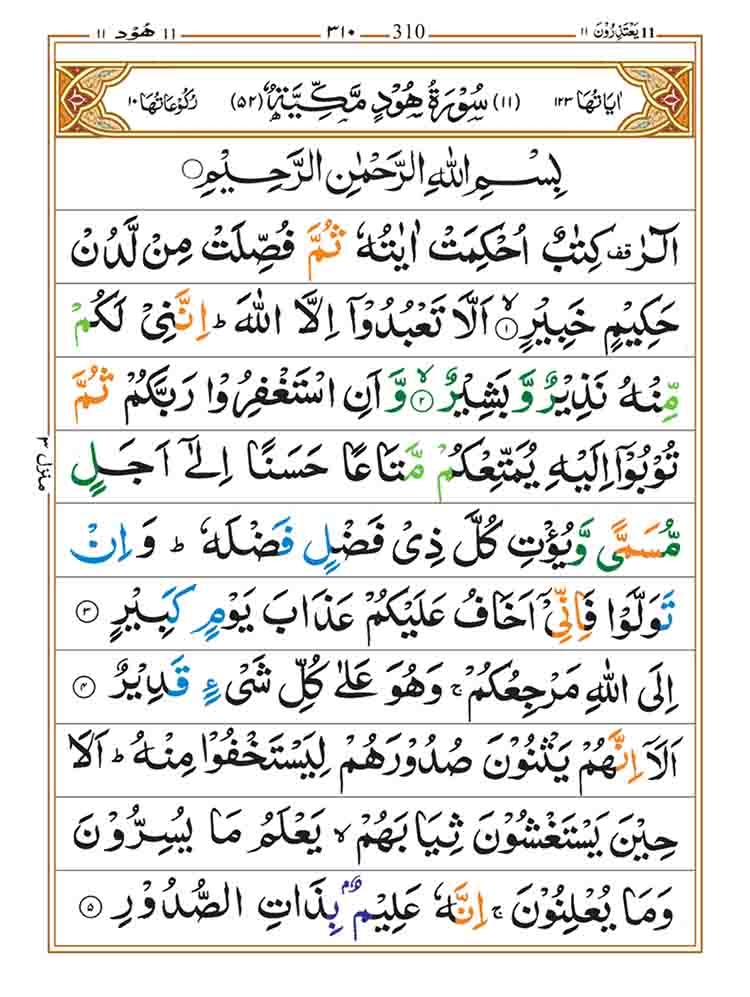 ۱۱ هُود ۱۱ ۳۱۰ 310 یَعْتَذِرُوْنَ ۱۱
اٰیَاتُهَا ۱۲۳ (۱۱) سُوْرَةُ هُوْدٍ مَّكِّیَّةٌ (۵۲) رُكُوْعَاتُهَا ۱۰
بِسْمِ اللّٰهِ الرَّحْمٰنِ الرَّحِیْمِ
الٓرٰ قف كِتٰبٌ اُحْكِمَتْ اٰیٰتُهٗ ثُمَّ فُصِّلَتْ مِنْ لَّدُنْ
حَكِیْمٍ خَبِیْرٍۙ ۱ اَلَّا تَعْبُدُوْۤا اِلَّا اللّٰهَ ؕ اِنَّنِیْ لَكُمْ
مِّنْهُ نَذِیْرٌ وَّ بَشِیْرٌۙ ۲ وَّ اَنِ اسْتَغْفِرُوْا رَبَّكُمْ ثُمَّ
تُوْبُوْۤا اِلَیْهِ یُمَتِّعْكُمْ مَّتَاعًا حَسَنًا اِلٰۤى اَجَلٍ
مُّسَمًّى وَّ یُؤْتِ كُلَّ ذِیْ فَضْلٍ فَضْلَهٗ ؕ وَ اِنْ
تَوَلَّوْا فَاِنِّیْۤ اَخَافُ عَلَیْكُمْ عَذَابَ یَوْمٍ كَبِیْرٍ ۳
اِلَى اللّٰهِ مَرْجِعُكُمْ ۚ وَ هُوَ عَلٰى كُلِّ شَیْءٍ قَدِیْرٌ ۴
اَلَاۤ اِنَّهُمْ یَثْنُوْنَ صُدُوْرَهُمْ لِیَسْتَخْفُوْا مِنْهُ ؕ اَلَا
حِیْنَ یَسْتَغْشُوْنَ ثِیَابَهُمْ ۙ یَعْلَمُ مَا یُسِرُّوْنَ
وَ مَا یُعْلِنُوْنَ ۚ اِنَّهٗ عَلِیْمٌۢ بِذَاتِ الصُّدُوْرِ ۵
منزل ۳